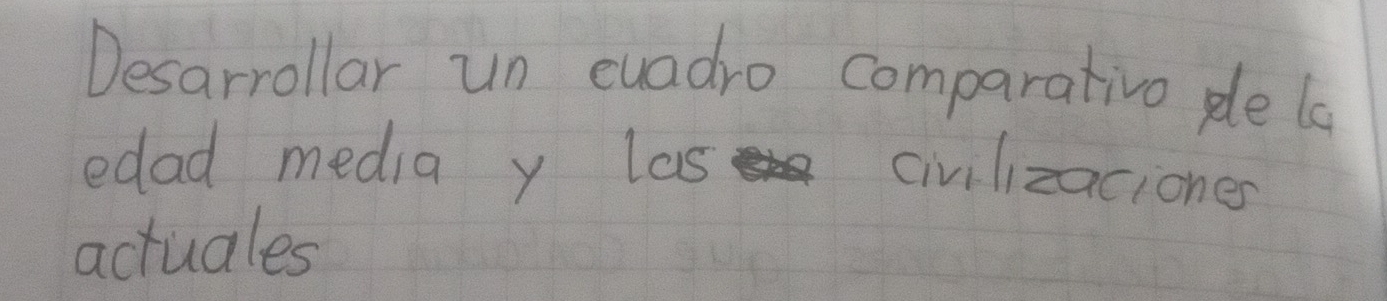 Desarrollar un cuadro comparativo de la
edad media y las civilizaciones
actuales